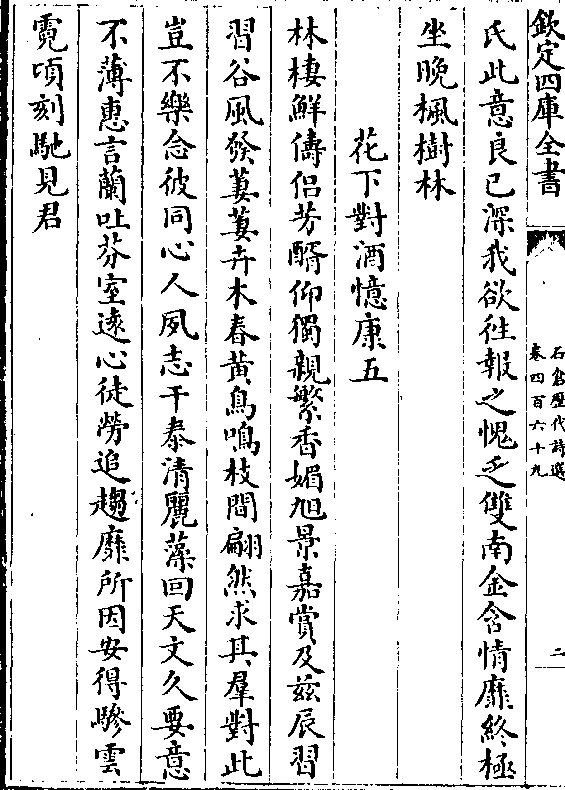 欽定四庫全書
石倉歷代詩選
卷四百六十九
二
氏此意良已深我欲往報之愧乏雙南金含情靡終極
坐晚楓樹林
花下對酒憶康五
林棲鮮儔侣芳醑仰獨親繁香媚旭景嘉賞及兹辰習
習谷風發萋萋卉木春黄鳥鳴枝間翩然求其羣對此
豈不樂念彼同心人夙志干泰清麗藻回天文久要意
不薄惠言蘭吐芬室遠心徒勞追趨靡所因安得驂雲
霓頃刻馳見君